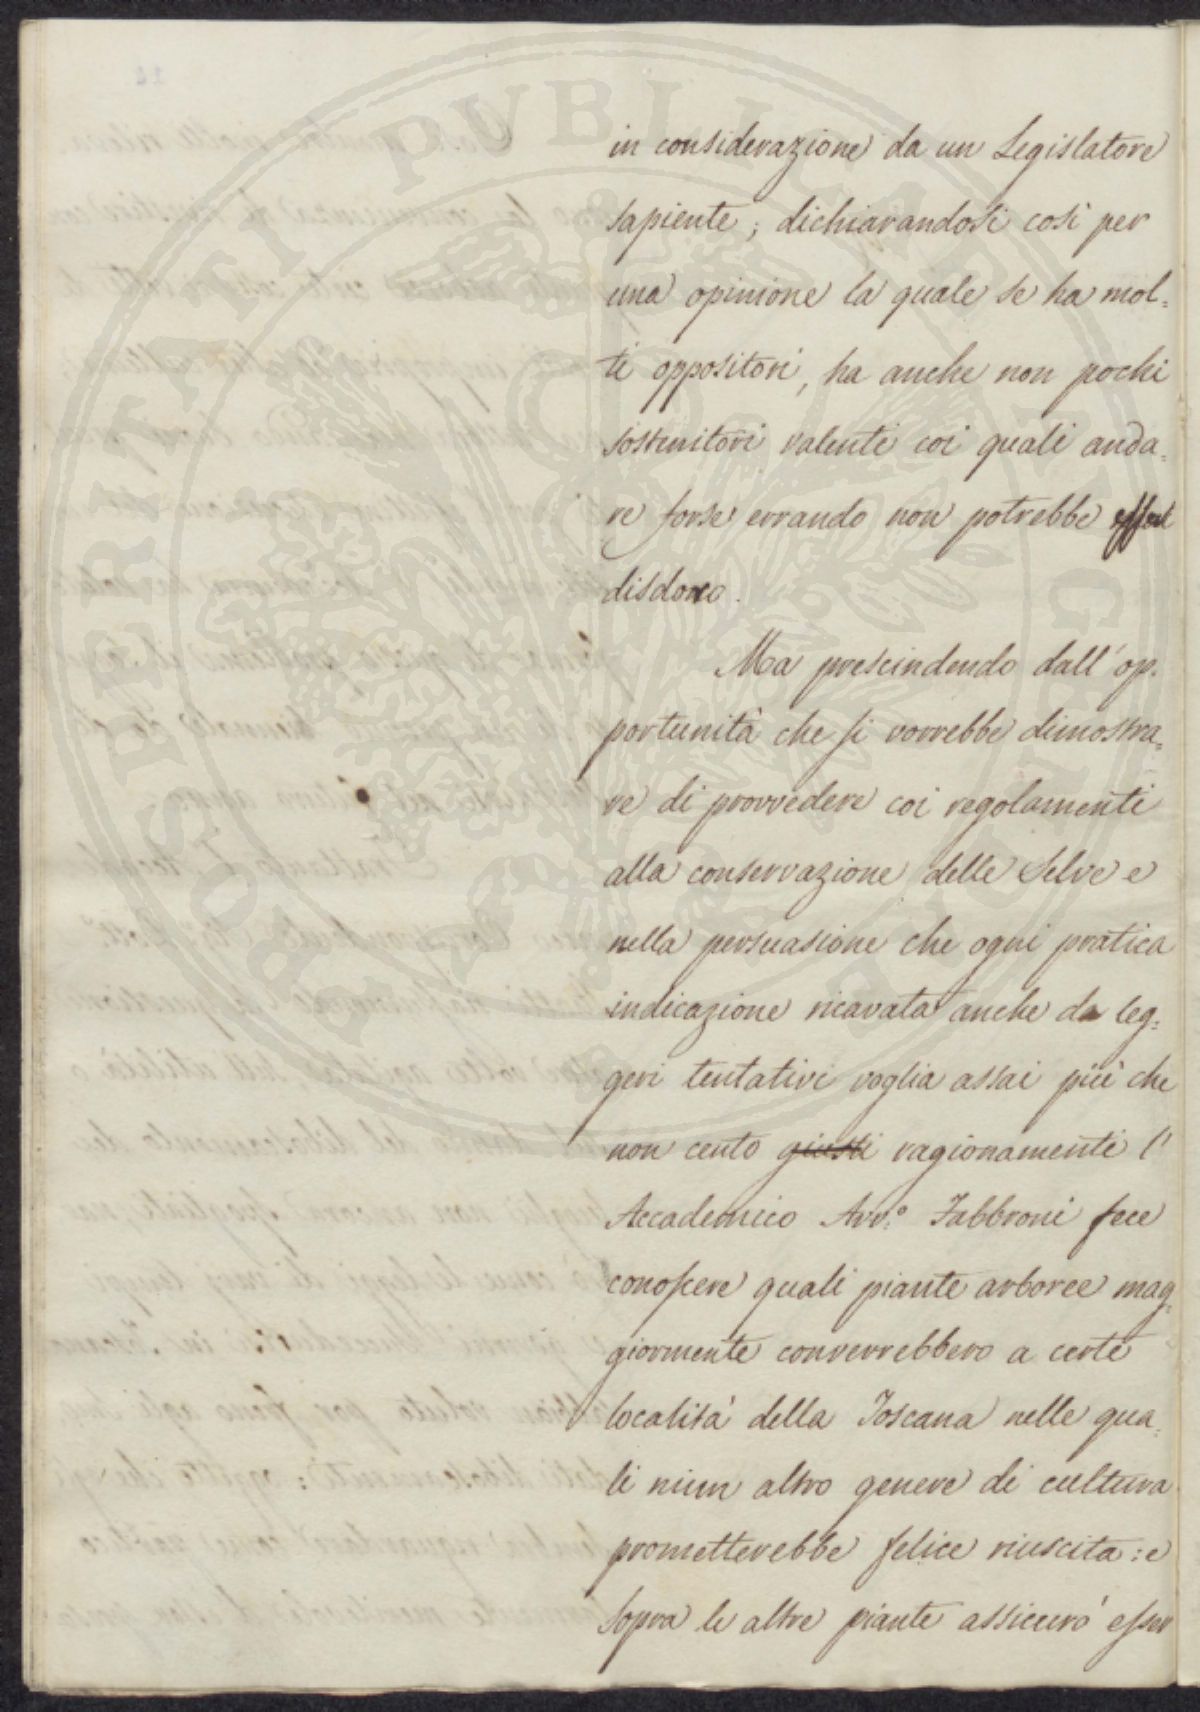 in considerazione da un Legislatore
sapiente; dichiarandosi così per
una opinione la quale se ha mol=
ti oppositori, ha anche non pochi
sostenitori valenti coi quali anda=
re forse errando non potrebbe esser
disdoro.
Ma prescindendo dall'op=
portunità che si vorrebbe dimostra=
re di provvedere coi regolamenti
alla conservazione delle Selve e
nella persuasione che ogni pratica
indicazione ricavata anche da leg=
geri tentativi voglia assai più che
non cento giusti ragionamenti l'
Accademico Avv.º Fabbroni fece
conoscere quali piante arboree mag=
giormente converrebbero a certe
località della Toscana nelle qua=
li niun altro genere di cultura
prometterebbe felice riuscita: e
sopra le altre piante assicurò esser
PROSPERITATI PUBLICAE AUGENDAE